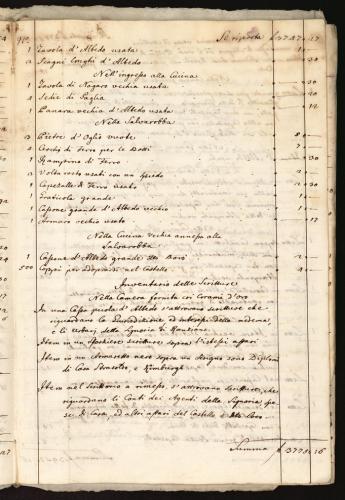 Si riporta f 3747 " 17
1 Tavola d'Albedo usata 1 "
2 Scagni longhi d'Albedo " 30
Nell'ingresso alla Cucina
1 Tavola di Nogaro vechia usata
4 Sedie di Paglia
1 Panara vechia d'Albedo usata " 12
Nella Salvarobba
3 Pietre d'Oglio vuote 8
4 Cerchj di Ferro per le Botti 7
1 Rampone di Ferro " 30
2 usati con un spiedo 2
1 di Ferro usato " 30
1 Graticola grande 1
1 Cassone grande d'Albedo vechio 1
1 Armaro vechio usato " 17
Nella Cucina vechia annessa alla
Salvarobba
1 Cassone d'Albedo grande 2
500 Coppi per adoprarsi nel Castello 4
Inventario delle Scritture
Nella Camera fornita coi Corami d'oro
In una Cassa picola d'Albedo s'attrovano scritture che
riguardano la Giurisditione ed interessi della medema,
e li della Signoria di
Item in un scritture sopra l'istessi affari
Item in un Armaretto nero sopra un sono Diplomi
di Casa e
Item nel Scrittorio a rimesso s'attrovano scritture, che
riguardano li Conti dei Agenti della Signoria,
di Casa, ed altri affari del Castello e
Summa f 3778 " 16